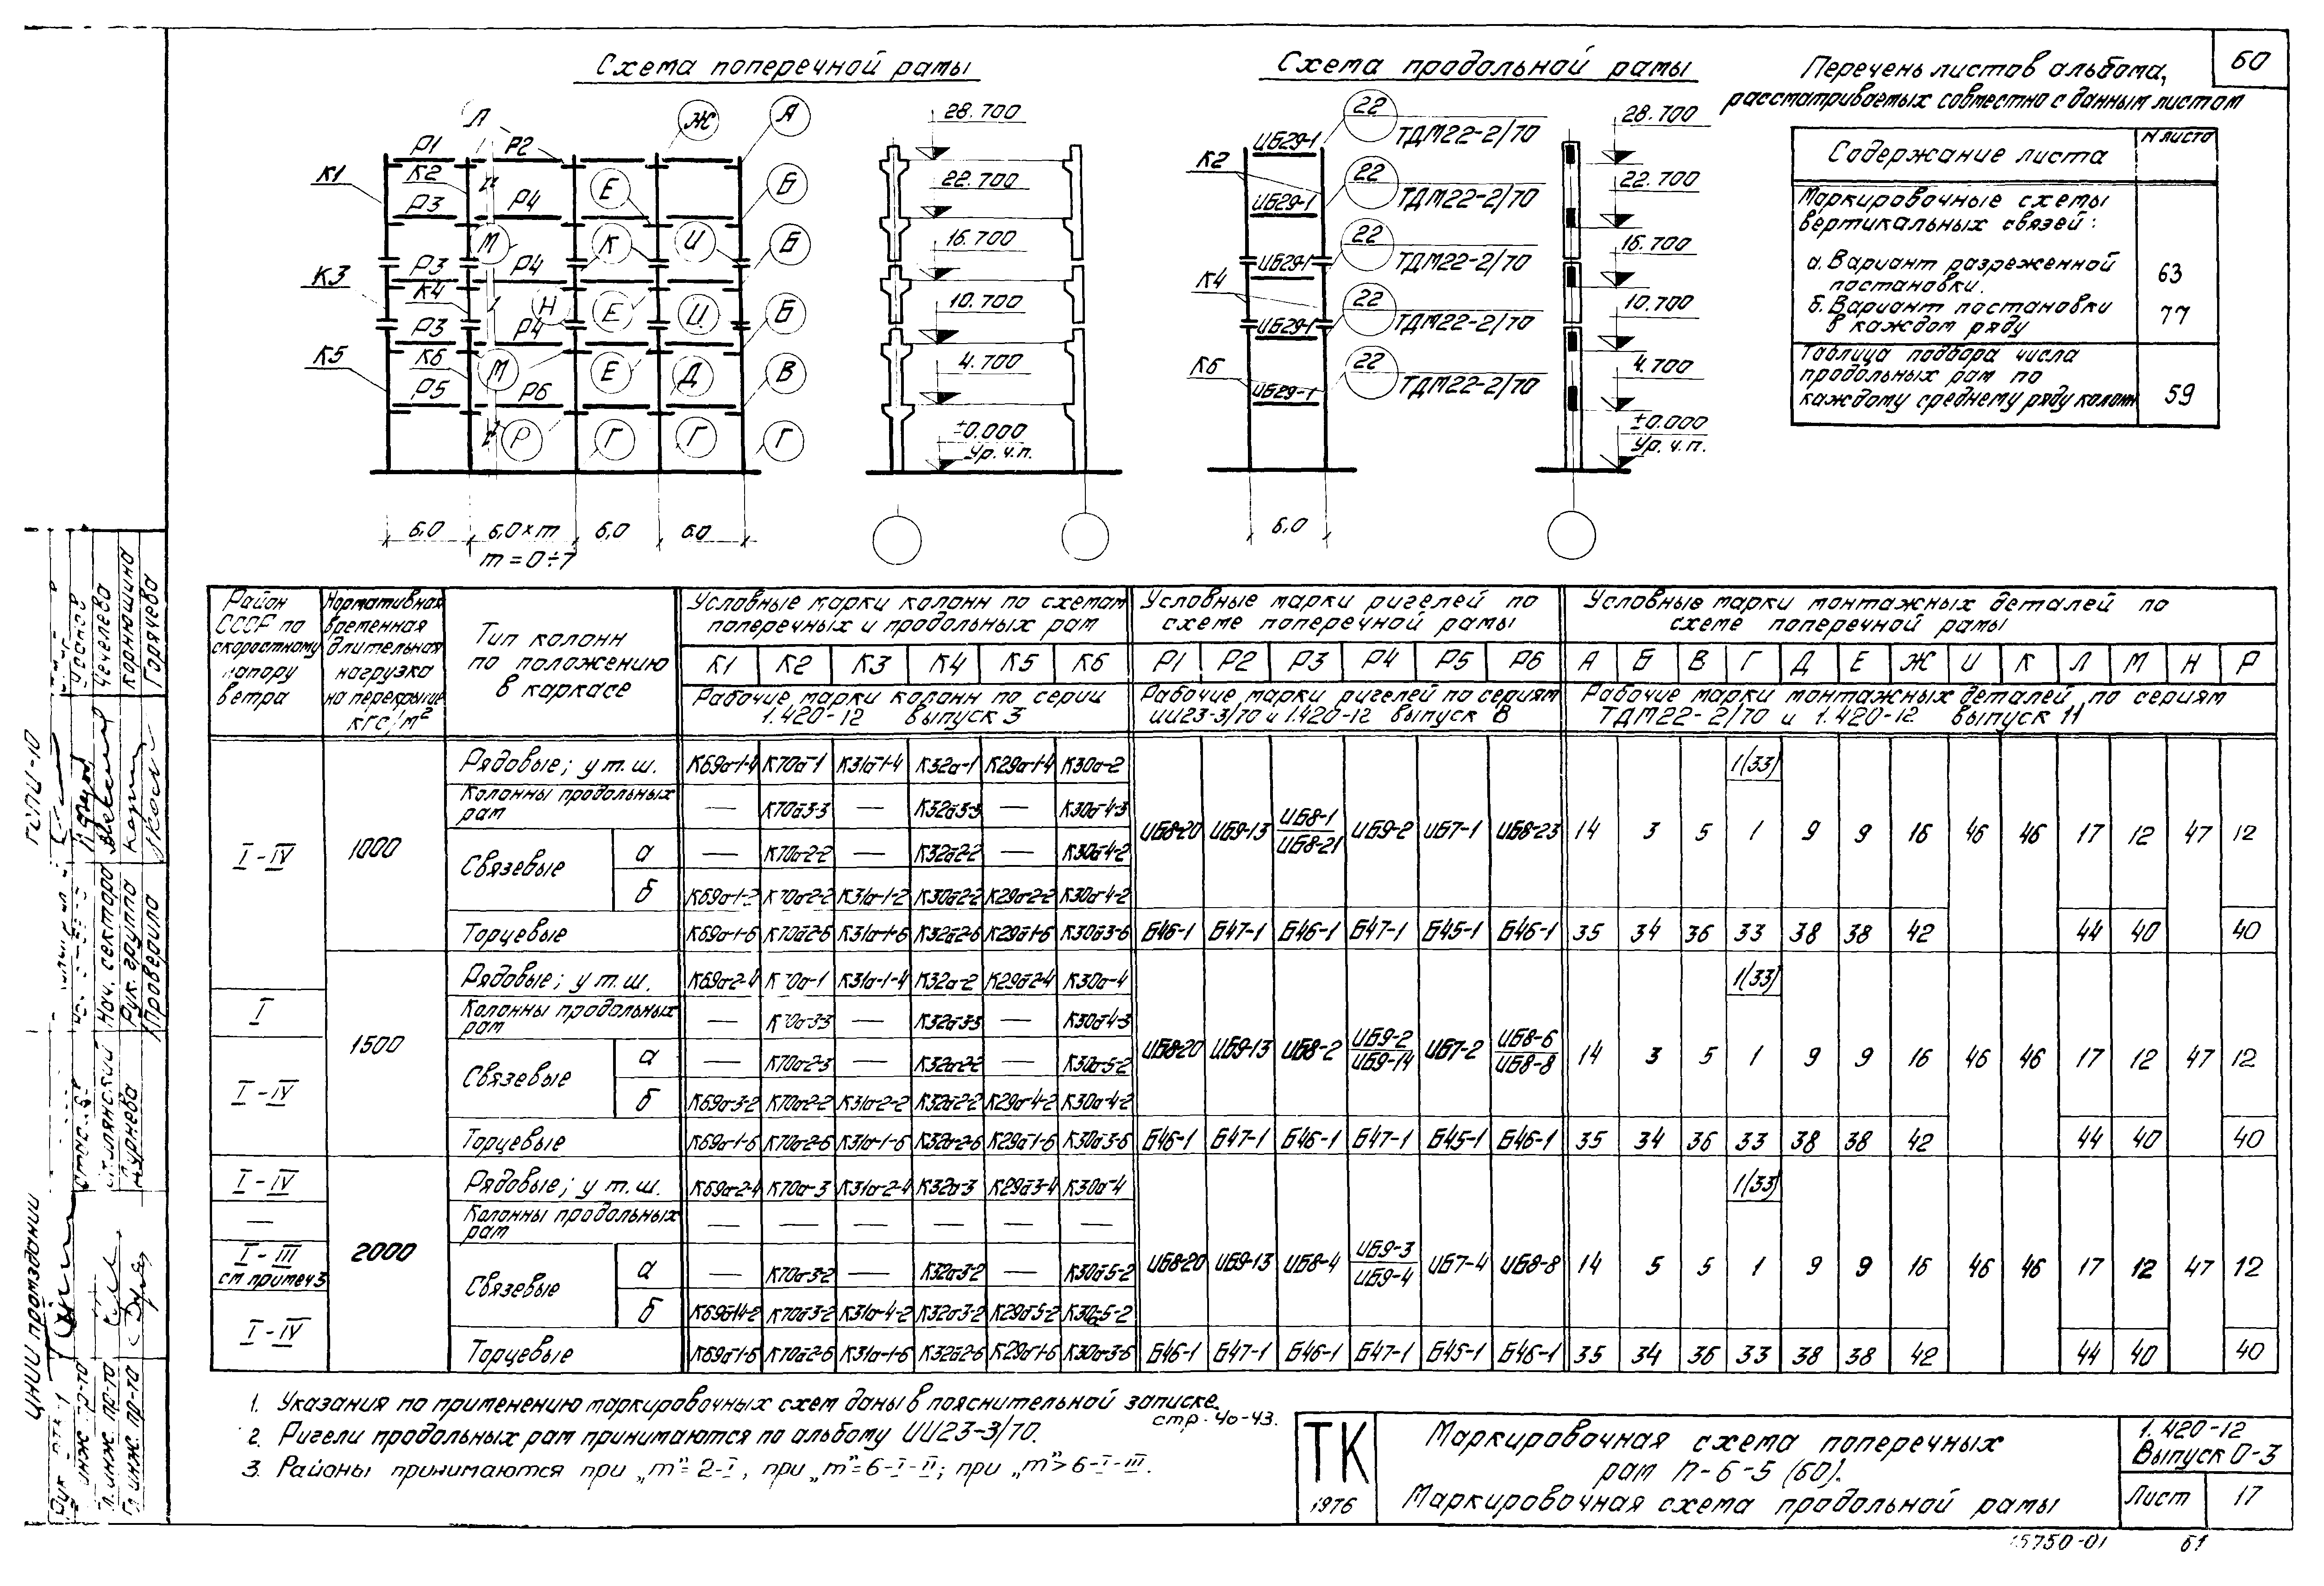 60
Схема поперечной рамы
Схема продольной рамы
Перечень листов альбома,
рассматриваемых совместно с данным листом
Содержание листа
N листа
Маркировочные схемы
вертикальных связей:
а. Вариант разреженной
постановки.
63
б. Вариант постановки
в каждом ряду
77
Таблица подбора числа
продольных рам по
каждому среднему ряду колонн
59
Л Ж А
Р1 Р2
К1 К2 Е Б
Р3 Р4
М К И Б
К3 Р3 Р4
К4 Н Е И Б
Р3 Р4
К5 К6 М Е Д В
Р5 Р6
Р Г Г Г
6,0 6,0×m 6,0 6,0
m=0÷7
28.700
22.700
16.700
10.700
4.700
±0.000
Ур. ч.п.
К2 ИБ29-1 22 ТДМ22-2/70
ИБ29-1 22 ТДМ22-2/70
К4 ИБ29-1 22 ТДМ22-2/70
ИБ29-1 22 ТДМ22-2/70
К6 ИБ29-1 22 ТДМ22-2/70
6,0
28.700
22.700
16.700
10.700
4.700
±0.000
Ур. ч.п.
Район
СССР по
скоростному
напору
ветра
Нормативная
временная
длительная
нагрузка
на перекрытие
кгс/м²
Тип колонн
по положению
в каркасе
Условные марки колонн по схемам
поперечных и продольных рам
Условные марки ригелей по
схеме поперечной рамы
Условные марки монтажных деталей по
схеме поперечной рамы
К1 К2 К3 К4 К5 К6 Р1 Р2 Р3 Р4 Р5 Р6 А Б В Г Д Е Ж И К Л М Н Р
Рабочие марки колонн по серии
1.420-12 выпуск 3
Рабочие марки ригелей по сериям
ИИ23-3/70 и 1.420-12 выпуск 8
Рабочие марки монтажных деталей по сериям
ТДМ22-2/70 и 1.420-12 выпуск 11
I-IV
1000
Рядовые; у т.ш. К69а-1-4 К70а-1 К31а-1-4 К32а-1 К29а-1-4 К30а-2 1(33)
Колонны продольных
рам — К70а3-3 — К32а3-3 — К30а-4-3
ИБ8-20 ИБ9-13 ИБ8-1 ИБ8-21 ИБ9-2 ИБ7-1 ИБ8-23 14 3 5 1 9 9 16 46 46 17 12 47 12
Связевые
а — К70а-2-2 — К32а2-2 — К30а-4-2
б К69а-1-2 К70а-2-2 К31а-1-2 К30а2-2 К29а-2-2 К30а-4-2
Торцевые К69а-1-6 К70а2-6 К31а-1-6 К32а2-6 К29а1-6 К30а3-6 Б46-1 Б47-1 Б46-1 Б47-1 Б45-1 Б46-1 35 34 36 33 38 38 42 44 40 40
I
I-IV
1500
Рядовые; у т.ш. К69а-2-4 К70а-1 К31а-1-4 К32а-2 К29а2-4 К30а-4 1(33)
Колонны продольных
рам — К70а-3-3 — К32а-3-3 — К30а-4-3
ИБ8-20 ИБ9-13 ИБ8-2 ИБ9-2 ИБ9-14 ИБ7-2 ИБ8-6 ИБ8-8 14 3 5 1 9 9 16 46 46 17 12 47 12
Связевые
а — К70а-2-3 — К32а-2-2 — К30а-5-2
б К69а-3-2 К70а-2-2 К31а-2-2 К32а-2-2 К29а-4-2 К30а-4-2
Торцевые К69а-1-6 К70а-2-6 К31а-1-6 К32а-2-6 К29а1-6 К30а3-6 Б46-1 Б47-1 Б46-1 Б47-1 Б45-1 Б46-1 35 34 36 33 38 38 42 44 40 40
I-IV
—
I-III
см. примеч 3
I-IV
2000
Рядовые; у т.ш. К69а-2-4 К70а-3 К31а-2-4 К32а-3 К29а3-4 К30а-4 1(33)
Колонны продольных
рам — — — — — —
ИБ8-20 ИБ9-13 ИБ8-4 ИБ9-3 ИБ9-4 ИБ7-4 ИБ8-8 14 5 5 1 9 9 16 46 46 17 12 47 12
Связевые
а — К70а-3-2 — К32а3-2 — К30а-5-2
б К69а14-2 К70а3-2 К31а-4-2 К32а-3-2 К29а5-2 К30а-5-2
Торцевые К69а-1-6 К70а2-6 К31а-1-6 К32а2-6 К29а1-6 К30а-3-6 Б46-1 Б47-1 Б46-1 Б47-1 Б45-1 Б46-1 35 34 36 33 38 38 42 44 40 40
1. Указания по применению маркировочных схем даны в пояснительной записке.
стр. 40-43.
2. Ригели продольных рам принимаются по альбому ИИ23-3/70.
3. Районы принимаются при „m"=2-I, при „m"=6-I-II; при „m">6-I-III.
ТК
1976
Маркировочная схема поперечных
рам П-6-5 (60).
Маркировочная схема продольной рамы
1.420-12
Выпуск 0-3
Лист 17
15750-01 61
ЦНИИ промзданий
Гл. инж. пр-та
Нач. сектора
Рук. группы
Проверила
Чечелева
Корнюшина
Горячева